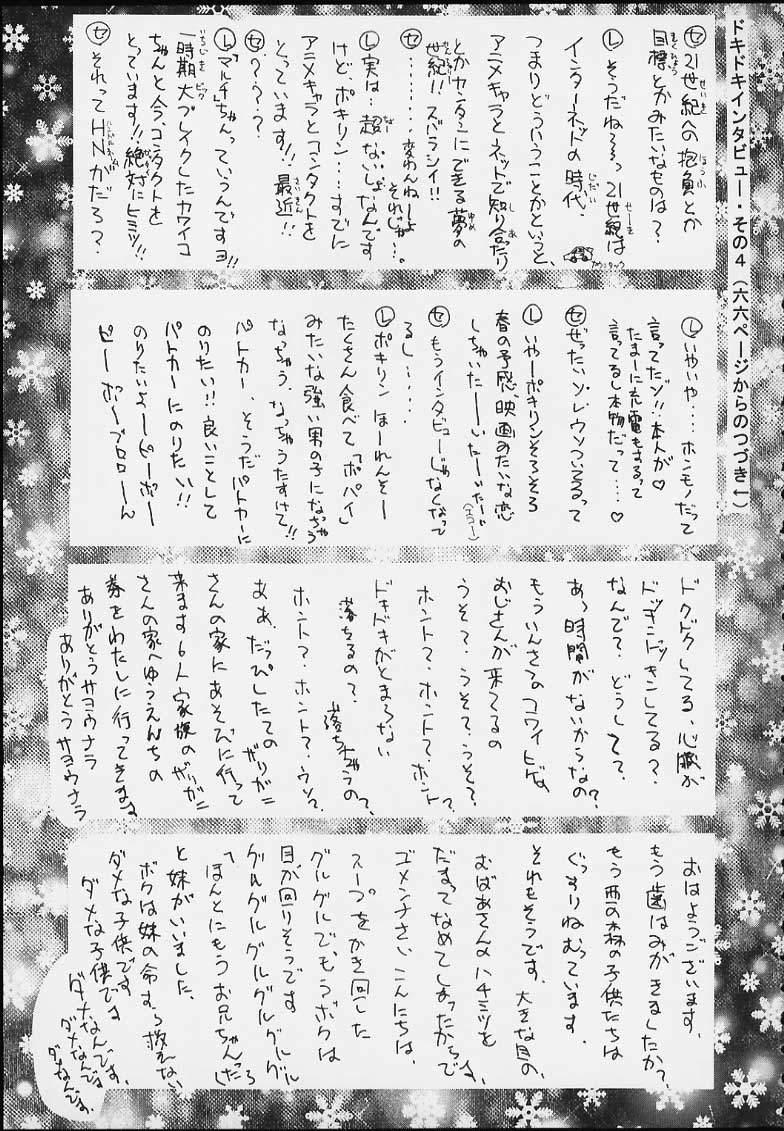 ドキドキインタビュー・その4(六六ページからのつづき←)
㋝21世紀への抱負とか
目標とかみたいなものは？
㋹そうだね〜〜っ21世紀は
インターネットの時代、
つまりどういうことかというと、
アニメキャラとネットで知り合ったり
とかカンタンにできる夢の
世紀!! ズバラシイ!!
㋝………変わんねーよ
それじゃ…。
㋹実は…超ないしょなんです
けどポキリン…すでに
アニメキャラとコンタクトを
とっています!! 最近!!
㋝？？？？
㋹「マルチ」ちゃんっていうんですヨ!!
一時期大ブレイクしたカワイコ
ちゃんと今、コンタクトを
とっています!!絶対にヒミツ!!
㋝それってHNがだろ？
㋹いやいや…ホンモノだって
言ってたゾ!!本人が♡
たまーに充電もするって
言ってるし本物だって…♡
㋝ぜったいソレウソついてるって
㋹いやーポキリンそろそろ
春の予感、映画みたいな恋
しちゃいたーいたーいたーい
(エコー)
㋝もうインタビューじゃなくなって
るし……
㋹ポキリンほーれんそー
たくさん食べて「ポパイ」
みたいな強い男の子になっちゃう
なっちゃう、なっちゃうたすけて!!
パトカー、そうだパトカーに
のりたい!!良いことして
パトカーにのりたい!!
のりたいよーピーポー
ピーポーブロローん
ドクドクしてる、心臓が
ドッキンドッキンしてる？
なんで？どうして？
あっ時間がないからなの？
もういんさつのコワイヒゲ
おじさんが来てるの
うそ？うそ？うそ？
ホント？ホント？ホント？
ドキドキがとまらない
落ちるの？落ちちゃうの？
ホント？ホント？ウソ？
ああ、だっぴしたてのザリガニ
さんの家にあそびに行って
来ます6人家族のザリガニ
さんの家へゆうえんちの
券をわたしに行ってきます
ありがとうサヨウナラ
ありがとうサヨウナラ
おはようございます、
もう歯はみがきましたか？
もう西の森の子供たちは
ぐっすりねむっています、
それもそうです、大きな目の、
おばあさんのハチミツを
だまってなめてしまったからです、
ゴメンナさい、こんにちは、
スープをかき回した
グルグルでもうボクは
目が回りそうです
グルグルグルグルグルグル
「ほんとにもうお兄ちゃんったら」
と妹がいいました、
ボクは妹の命すら救えない
ダメな子供です
ダメな子供です
ダメなんです、
ダメなんです、
ダメなんです、